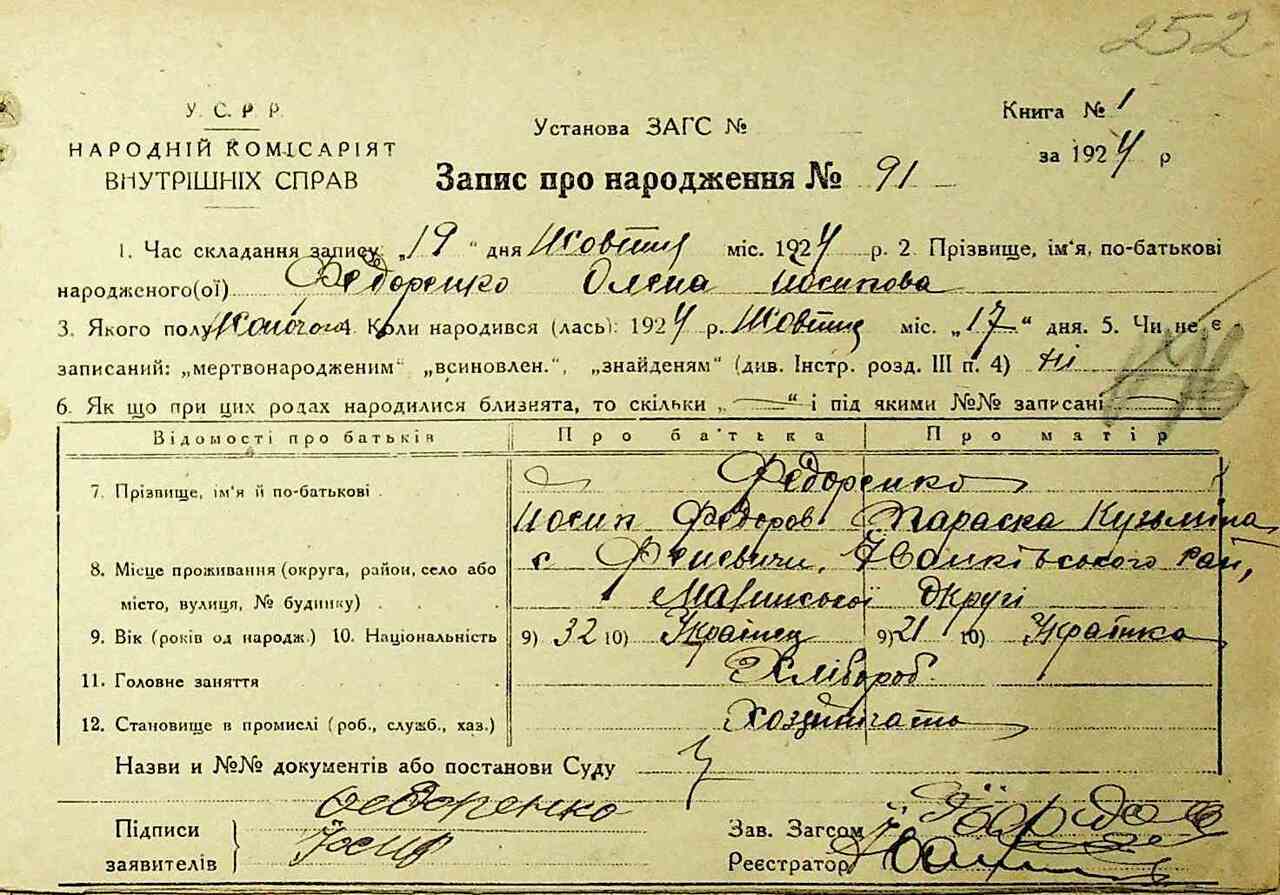 252
У. С. Р. Р.
НАРОДНІЙ КОМІСАРІЯТ
ВНУТРІШНІХ СПРАВ
Установа ЗАГС №
Книга № 1
за 1924 р
Запис про народження № 91
1. Час складання запису „19“ дня Жовтня міс. 1924 р. 2. Прізвище, ім'я, по-батькові
народженого(ої) Федоренко Олена Йосипова
3. Якого полу Жіночого 4. Коли народився (лась): 1924 р. Жовтня міс. „17“ дня. 5. Чи не є
записаний: „мертвонародженим“ „всиновлен.“, „знайденям“ (див. Інстр. розд. III п. 4) ні
6. Як що при цих родах народилися близнята, то скільки „—“ і під якими №№ записані —
Відомості про батьків Про батька Про матір
7. Прізвище, ім'я й по-батькові Федоренко
Иосип Федоров Параска Кузьміна
8. Місце проживання (округа, район, село або
місто, вулиця, № будинку)
с Феневичи, Іванківського рай,
Малинської Округі
9. Вік (років од народж.) 10. Національність 9) 32 10) Украінец 9) 21 10) Украінка
11. Головне заняття Хлібороб
12. Становище в промислі (роб., служб., хаз.)
Назви и №№ документів або постанови Суду
Підписи
заявителів
Федоренко
Йосип
Зав. Загсом
Реєстратор